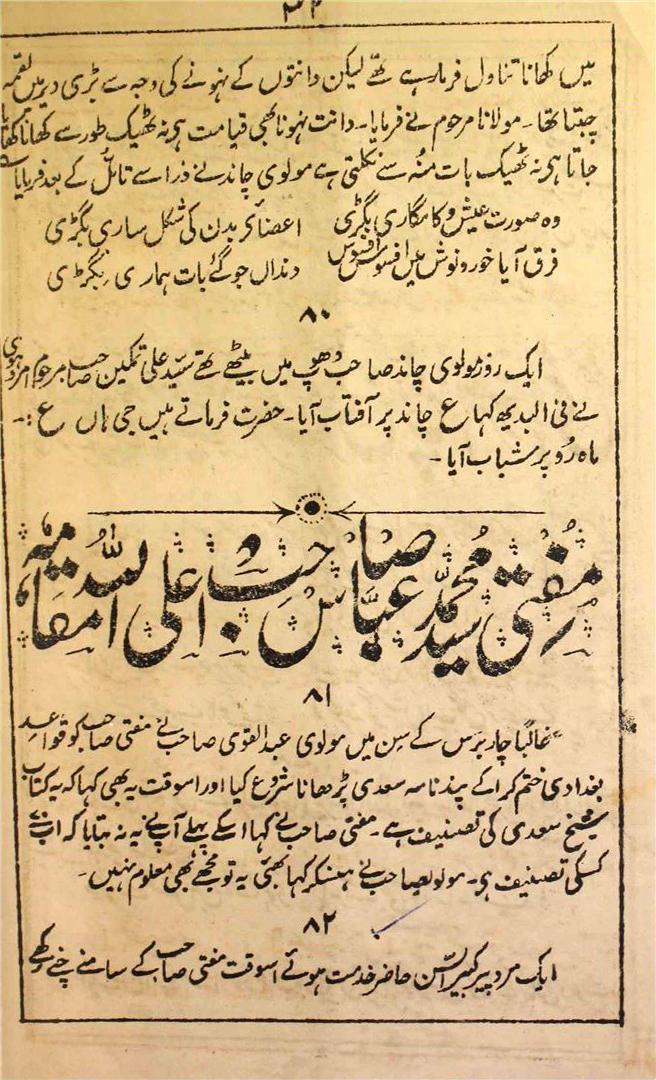 میں کھانا تناول فرمارہے تھے لیکن دانتوں کے نہونے کی وجہ سے بڑی دیر میں لقمہ
چبتا تھا۔ مولانا مرحوم نے فرمایا۔ دانت نہونا بھی قیامت ہی نہ ٹھیک طور سے کھانا کھایا
جاتا ہی نہ ٹھیک بات منہ سے نکلتی ہے مولوی چاند نے ذرا سے تامل کے بعد فرمایا
وہ صورت عیش و کامگاری بگڑی اعضائے بدن کی شکل ساری بگڑی
فرق آیا خور و نوش میں افسوس افسوس دنداں جو گئے بات ہماری بگڑی
۸۰
ایک روز مولوی چاند صاحب دھوپ میں بیٹھے تھے سید علی تمکین صاحب مرحوم امروہوی
نے فی البدیہہ کہا ع چاند پر آفتاب آیا۔ حضرت فرماتے ہیں جی ہاں ع :۔
ماہ رو پر شباب آیا۔
مفتی سید محمد عباس صاحب اعلی اللہ مقامہ
۸۱
غالبًا چار برس کے سن میں مولوی عبد القوی صاحب نے مفتی صاحب کو قواعد
بغدادی ختم کرا کے پندنامہ سعدی پڑھانا شروع کیا اور اسوقت یہ بھی کہا کہ یہ کتاب
شیخ سعدی کی تصنیف ہے۔ مفتی صاحب نے کہا اسکے پہلے آپ نے یہ نہ بتایا کہ اب ت
کسکی تصنیف ہی۔ مولویصاحب نے ہنسکر کہا بھئی یہ تو مجھے بھی معلوم نہیں۔
۸۲
ایک مرد پیر کبیر السن حاضر خدمت ہوئے اسوقت مفتی صاحب کے سامنے چنے رکھے